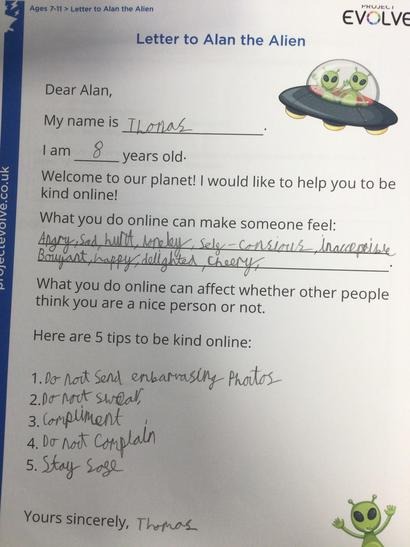 Ages 7-11 > Letter to Alan the Alien
PROJECT
EVOLVE
Letter to Alan the Alien
Dear Alan,
My name is Thomas.
I am 8 years old.
Welcome to our planet! I would like to help you to be
kind online!
What you do online can make someone feel:
Angry, Sad, hurt, lonely, self-consious, Inacceptible
Bouyant, happy, delighted, cheery,
What you do online can affect whether other people
think you are a nice person or not.
Here are 5 tips to be kind online:
1. Do nott Send embarrasing Photos
2. Do nott swear,
3. Compliment
4. Do nott Complain
5. Stay Safe
Yours sincerely, Thomas
projectevolve.co.uk